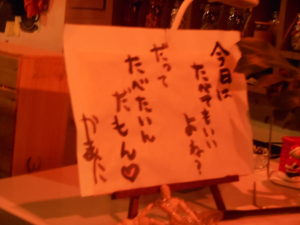 今日は
たべてもいい
よね?
だって
たべたいんだもん♡